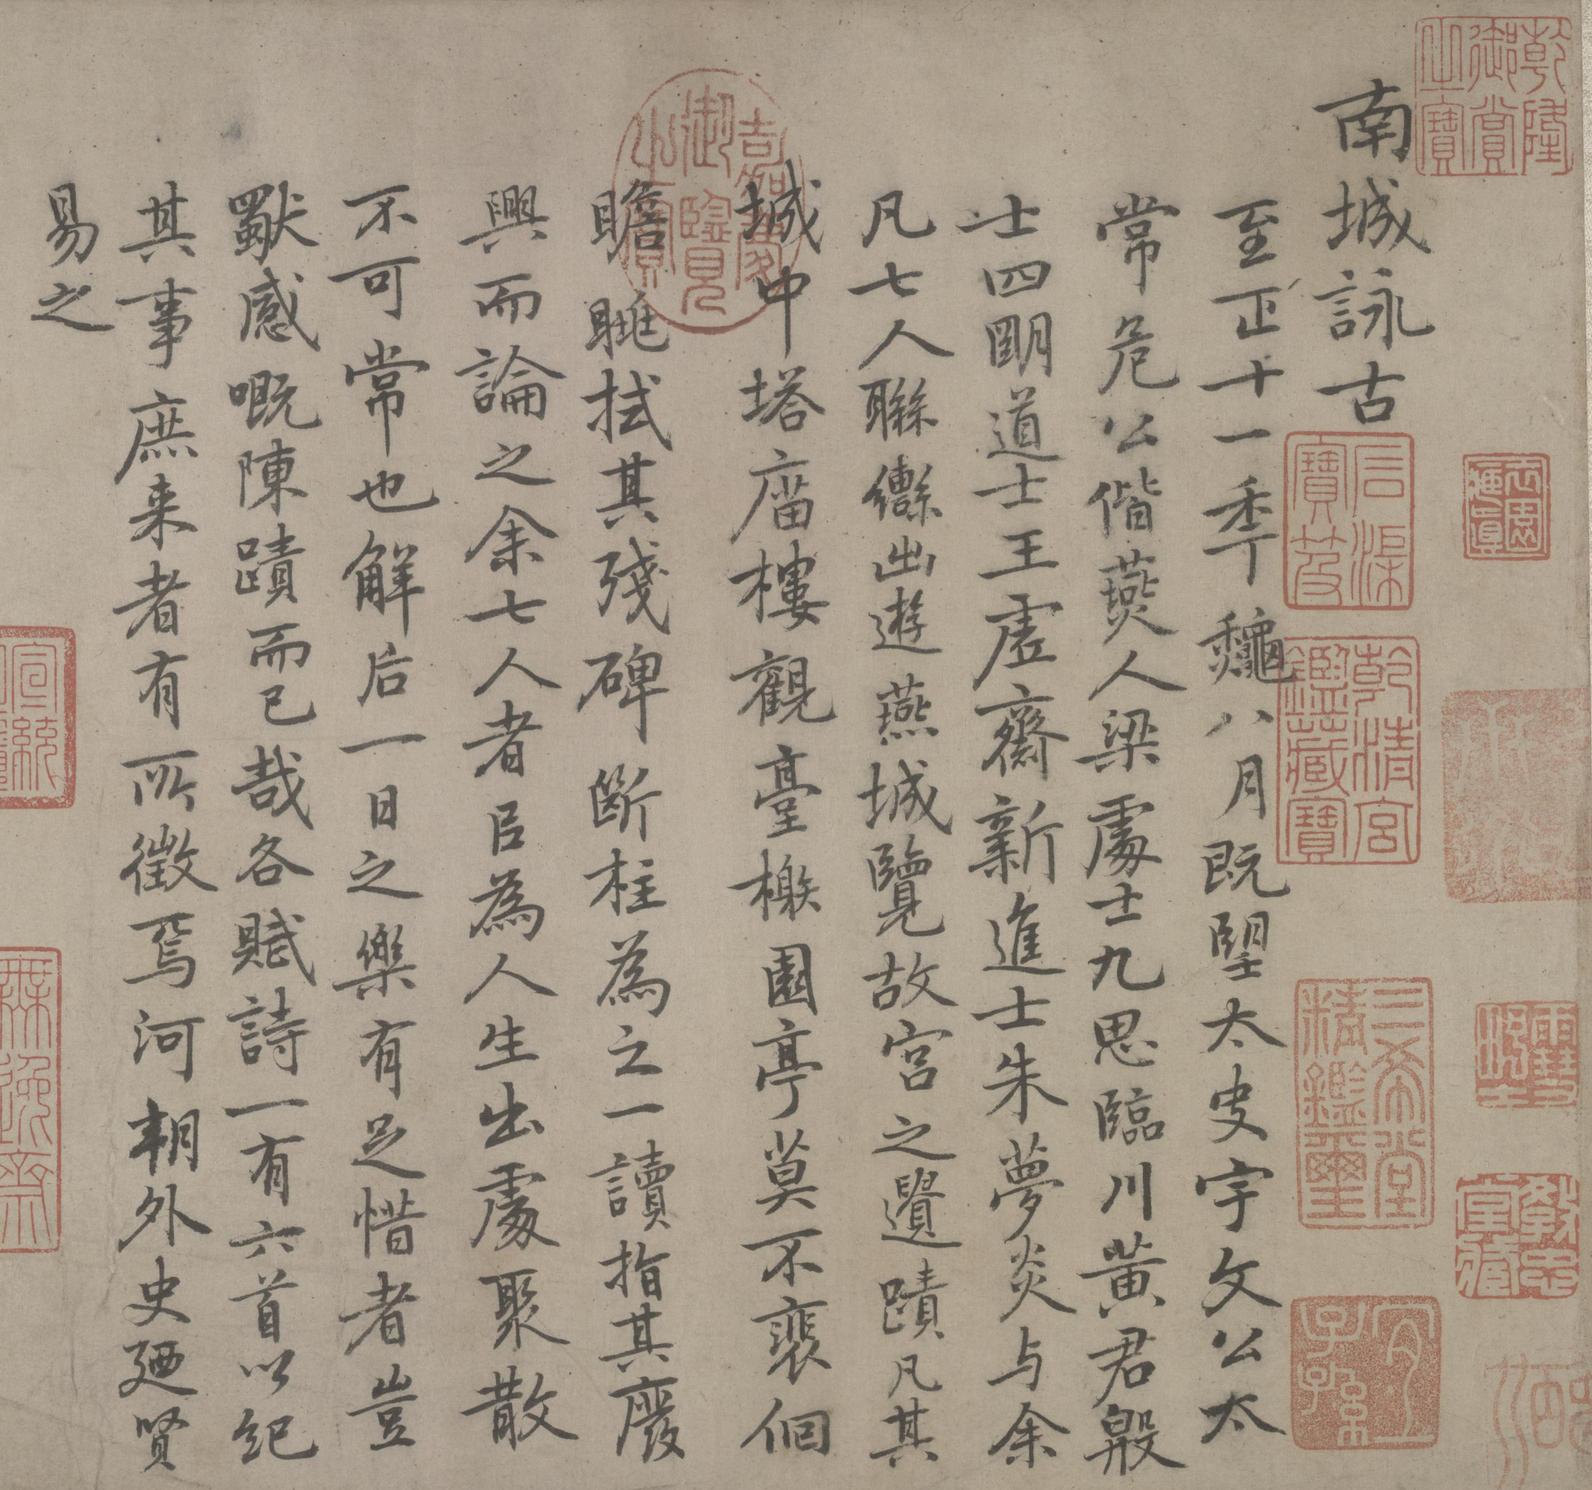 南城詠古
至正十一季龝八月既望太史宇文公太
常危公偕燕人梁處士九思臨川黃君殷
士四明道士王虛齋新進士朱夢炎与余
凡七人聯轡出遊燕城覽故宮之遺蹟凡其
城中塔廟樓觀臺榭園亭莫不裵佪
瞻眺拭其殘碑斷柱為之一讀指其廢
興而論之余七人者㠯為人生出處聚散
不可常也解后一日之樂有足惜者豈
獨感嘅陳蹟而已哉各賦詩一有六首以紀
其事庶来者有所徵焉河朝外史廼賢
易之
乾隆御賞之寶
嘉慶御覽之寶
石渠寶笈
乾清宮鑑藏寶
三希堂精鑑璽
宜子孫
宣統
無逸齋